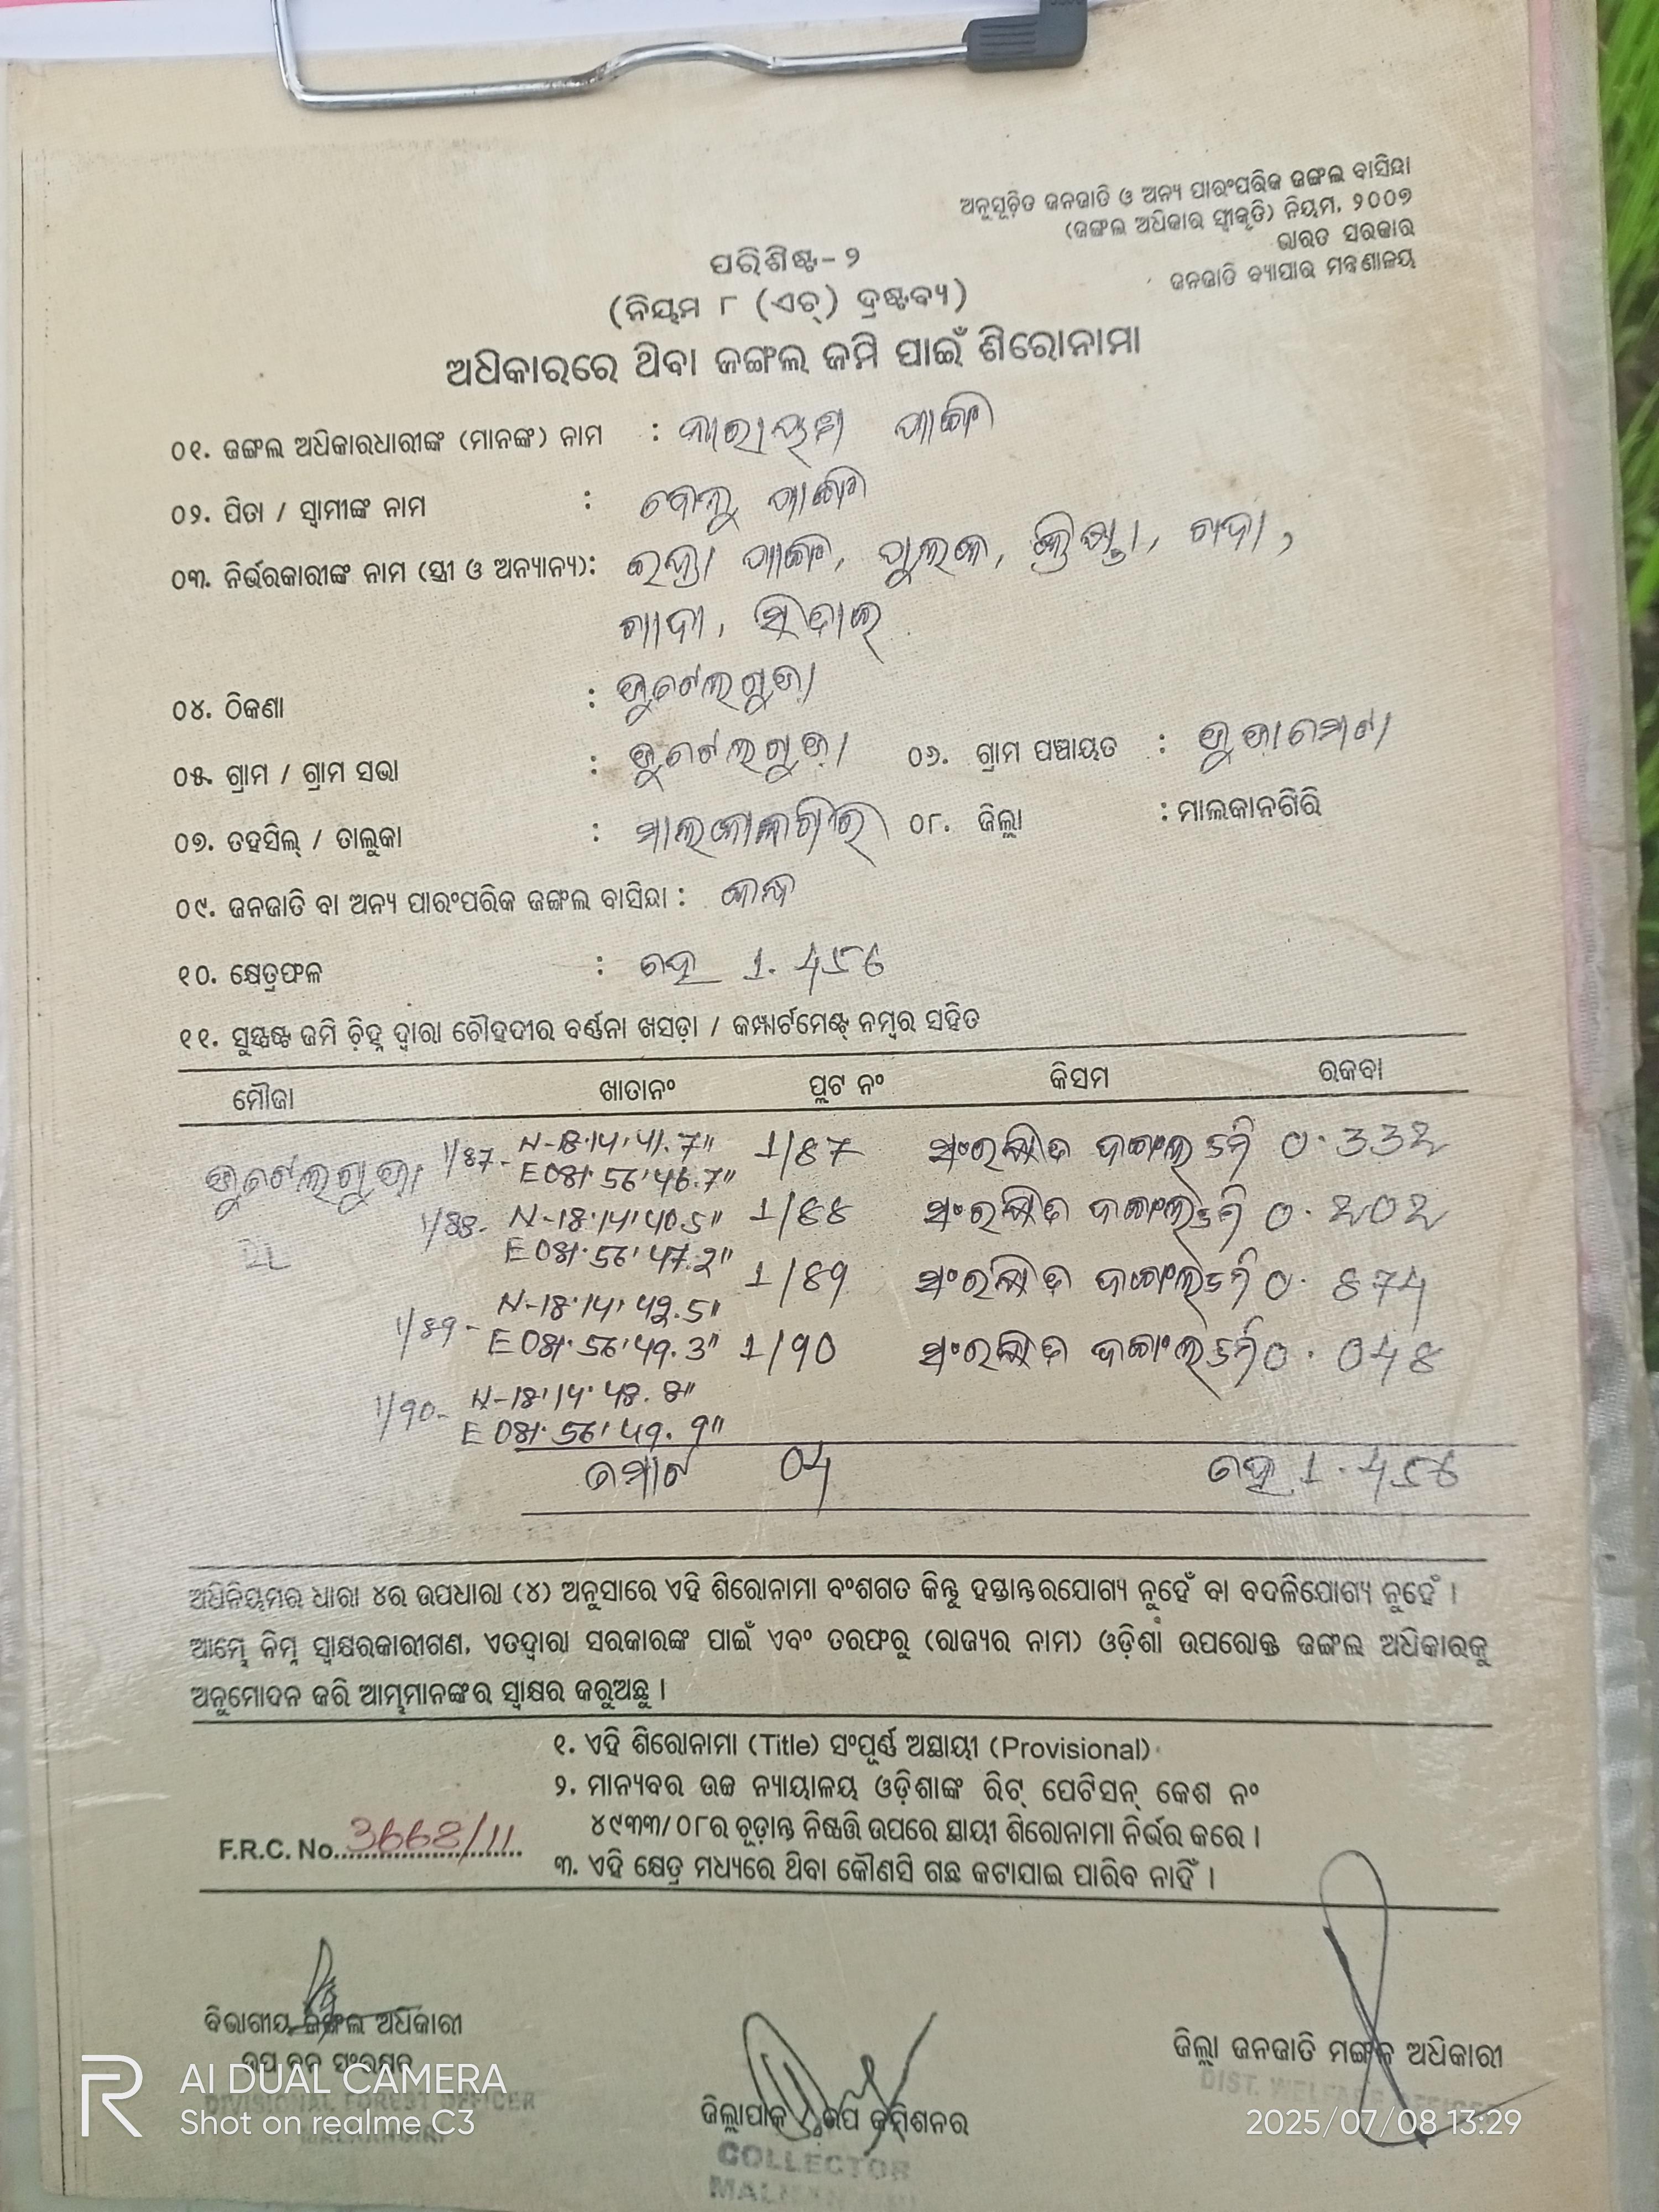 ଅନୁସୂଚିତ ଜନଜାତି ଓ ଅନ୍ୟ ପାରଂପରିକ ଜଙ୍ଗଲ ବାସିନ୍ଦା
(ଜଙ୍ଗଲ ଅଧିକାର ସ୍ଵୀକୃତି) ନିୟମ, ୨୦୦୭
ଭାରତ ସରକାର
ଜନଜାତି ବ୍ୟାପାର ମନ୍ତ୍ରଣାଳୟ
ପରିଶିଷ୍ଟ- ୨
(ନିୟମ ୮ (ଏଚ୍) ଦ୍ରଷ୍ଟବ୍ୟ)
ଅଧିକାରରେ ଥିବା ଜଙ୍ଗଲ ଜମି ପାଇଁ ଶିରୋନାମା
୦୧. ଜଙ୍ଗଲ ଅଧିକାରଧାରୀଙ୍କ (ମାନଙ୍କ) ନାମ : ନାରାୟଣ ପାଙ୍ଗି
୦୨. ପିତା / ସ୍ଵାମୀଙ୍କ ନାମ : ପାଙ୍ଗି
୦୩. ନିର୍ଭରକାରୀଙ୍କ ନାମ (ସ୍ତ୍ରୀ ଓ ଅନ୍ୟାନ୍ୟ): ପାଙ୍ଗି,
୦୪. ଠିକଣା :
୦୫. ଗ୍ରାମ / ଗ୍ରାମ ସଭା : ୦୬. ଗ୍ରାମ ପଞ୍ଚାୟତ :
୦୭. ତହସିଲ୍ / ତାଲୁକା : ମାଲକାନଗିରି ୦୮. ଜିଲ୍ଲା : ମାଲକାନଗିରି
୦୯. ଜନଜାତି ବା ଅନ୍ୟ ପାରଂପରିକ ଜଙ୍ଗଲ ବାସିନ୍ଦା : କନ୍ଧ
୧୦. କ୍ଷେତ୍ରଫଳ : ହେ 1.456
୧୧. ସୁସ୍ପଷ୍ଟ ଜମି ଚିହ୍ନ ଦ୍ଵାରା ଚୌହଦୀର ବର୍ଣ୍ଣନା ଖସଡ଼ା / କମ୍ପାର୍ଟମେଣ୍ଟ୍ ନମ୍ବର ସହିତ
ମୌଜା ଖାତାନଂ ପ୍ଲଟ ନଂ କିସମ ରକବା
1/87- N-18°14'41.7" 1/87 ସଂରକ୍ଷିତ ଜଙ୍ଗଲ ଜମି 0.332
E 081°56'46.7"
1/88- N-18°14'40.5" 1/88 ସଂରକ୍ଷିତ ଜଙ୍ଗଲ ଜମି 0.202
E 081°56'47.2"
1/89 ସଂରକ୍ଷିତ ଜଙ୍ଗଲ ଜମି 0.874
1/89- N-18°14'42.5"
E 081°56'49.3" 1/90 ସଂରକ୍ଷିତ ଜଙ୍ଗଲ ଜମି 0.048
1/90- N-18°14'48.8"
E 081°56'49.9"
ମୋଟ 04 ହେ 1.456
ଅଧିନିୟମର ଧାରା ୪ର ଉପଧାରା (୪) ଅନୁସାରେ ଏହି ଶିରୋନାମା ବଂଶଗତ କିନ୍ତୁ ହସ୍ତାନ୍ତରଯୋଗ୍ୟ ନୁହେଁ ବା ବଦଳିଯୋଗ୍ୟ ନୁହେଁ ।
ଆମ୍ଭେ ନିମ୍ନ ସ୍ଵାକ୍ଷରକାରୀଗଣ, ଏତଦ୍ଵାରା ସରକାରଙ୍କ ପାଇଁ ଏବଂ ତରଫରୁ (ରାଜ୍ୟର ନାମ) ଓଡ଼ିଶା ଉପରୋକ୍ତ ଜଙ୍ଗଲ ଅଧିକାରକୁ
ଅନୁମୋଦନ କରି ଆମ୍ଭମାନଙ୍କର ସ୍ଵାକ୍ଷର କରୁଅଛୁ ।
୧. ଏହି ଶିରୋନାମା (Title) ସଂପୂର୍ଣ୍ଣ ଅସ୍ଥାୟୀ (Provisional)
୨. ମାନ୍ୟବର ଉଚ୍ଚ ନ୍ୟାୟାଳୟ ଓଡ଼ିଶାଙ୍କ ରିଟ୍ ପେଟିସନ୍ କେଶ ନଂ
୪୯୩୩/୦୮ର ଚୂଡ଼ାନ୍ତ ନିଷ୍ପତ୍ତି ଉପରେ ସ୍ଥାୟୀ ଶିରୋନାମା ନିର୍ଭର କରେ ।
F.R.C. No. 3662/11
୩. ଏହି କ୍ଷେତ୍ର ମଧ୍ୟରେ ଥିବା କୌଣସି ଗଛ କଟାଯାଇ ପାରିବ ନାହିଁ ।
ବିଭାଗୀୟ ଜଙ୍ଗଲ ଅଧିକାରୀ
ଉପ ବନ ସଂରକ୍ଷକ
DIVISIONAL FOREST OFFICER
MALKANGIRI
ଜିଲ୍ଲାପାଳ / ଉପ କମିଶନର
COLLECTOR
ଜିଲ୍ଲା ଜନଜାତି ମଙ୍ଗଳ ଅଧିକାରୀ
DIST. WELFARE OFFICER
AI DUAL CAMERA
Shot on realme C3
2025/07/08 13:29